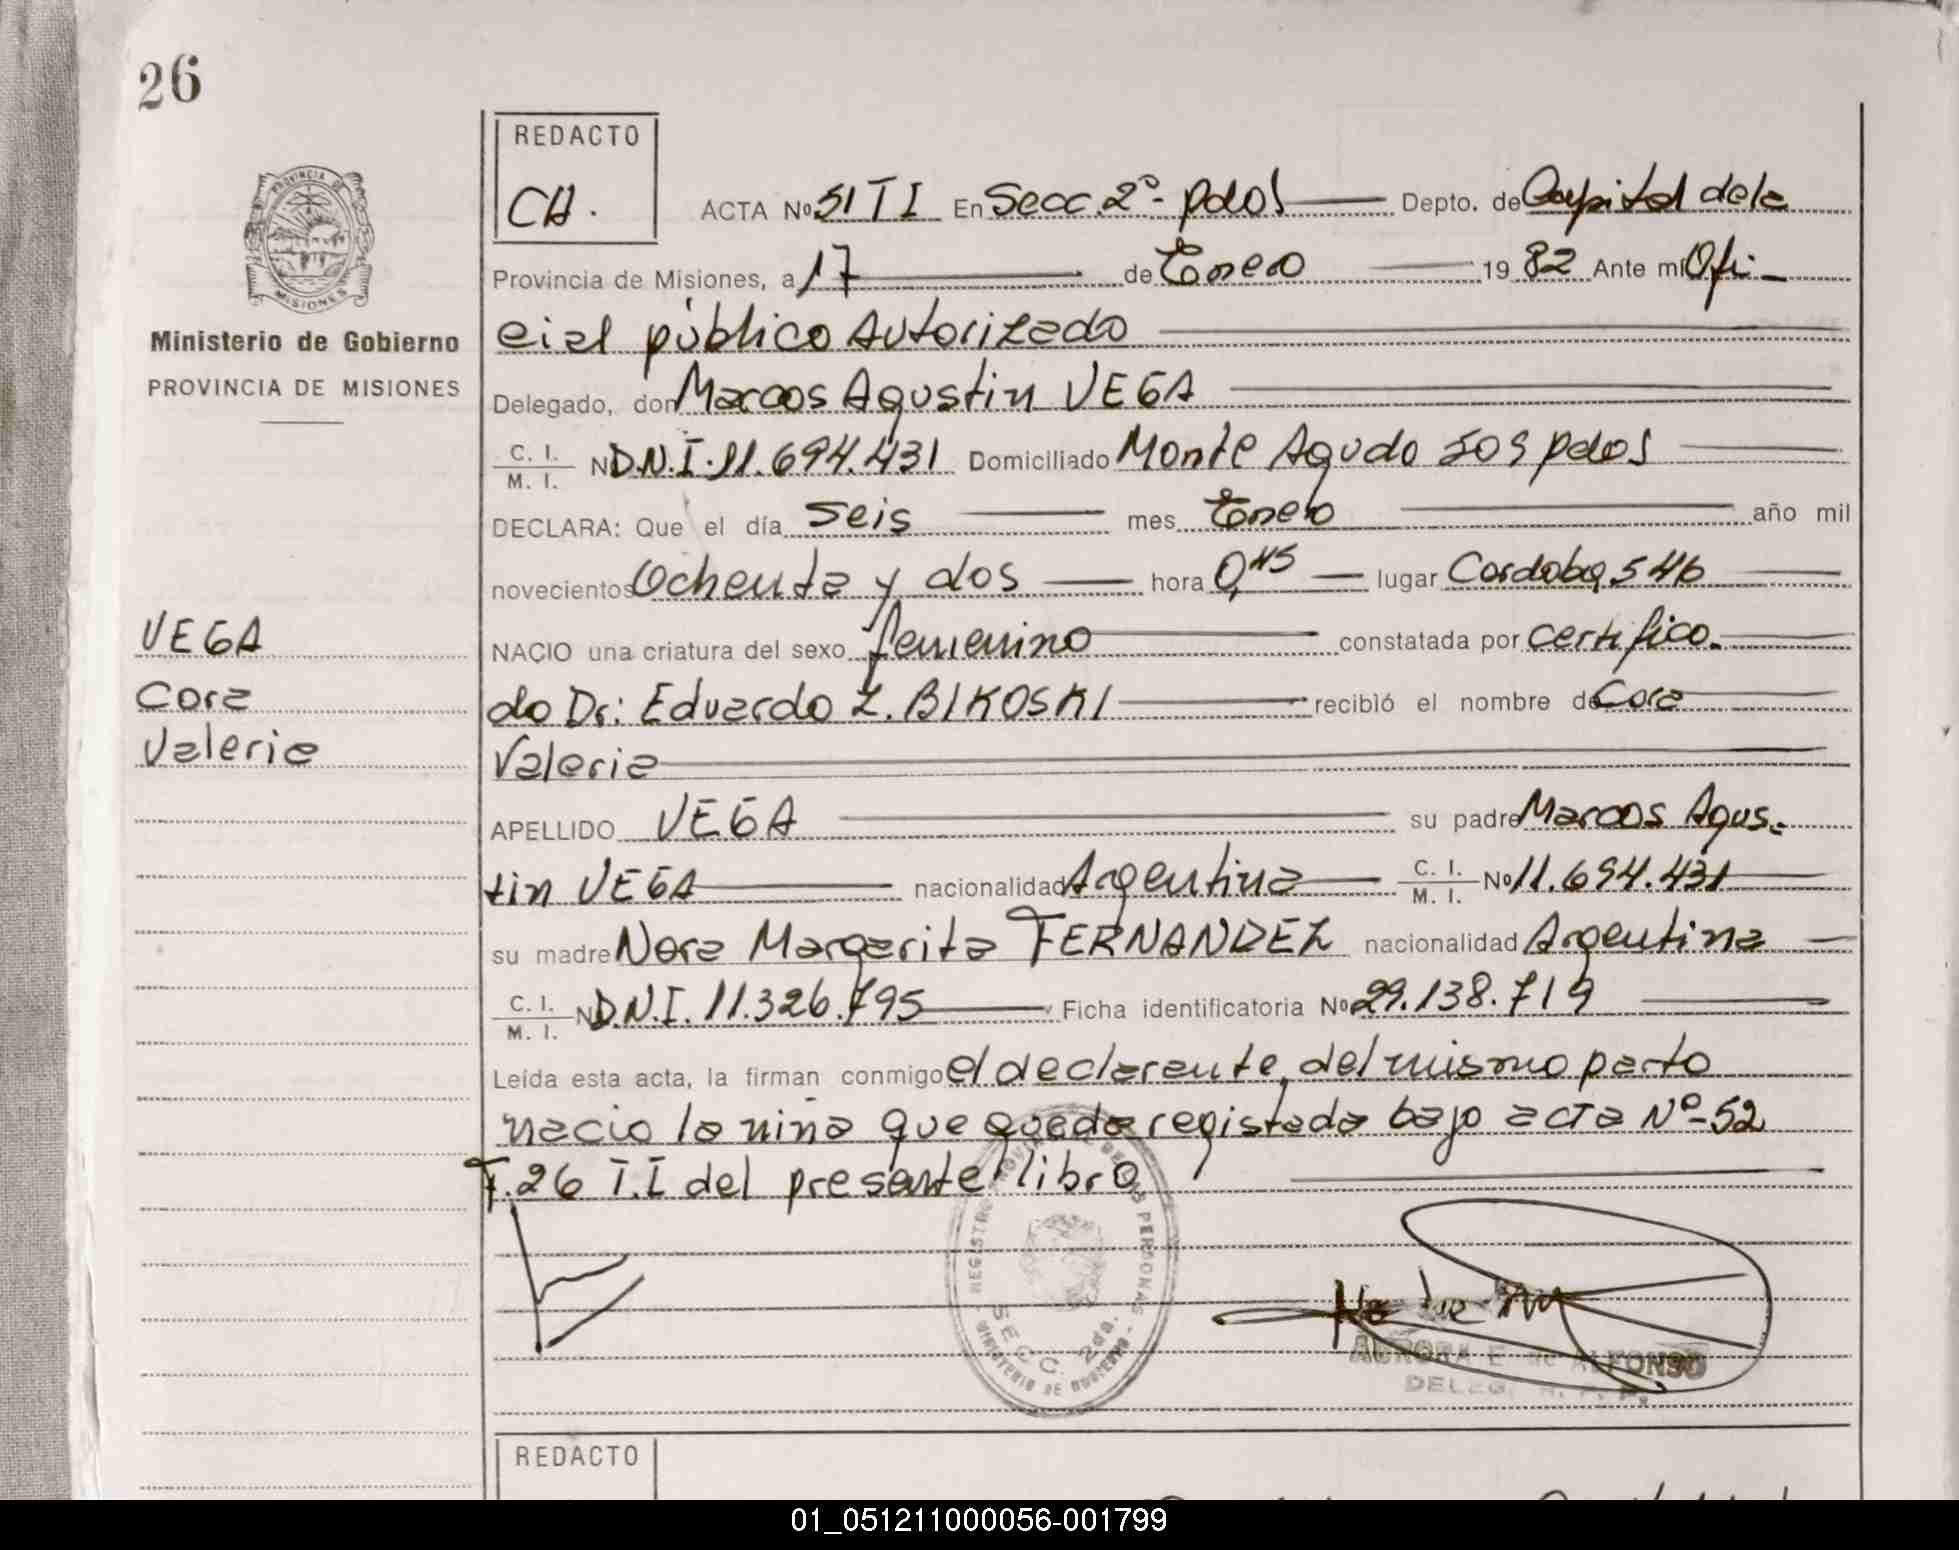 26
REDACTO
CH.
ACTA Nº 51 T I En Secc. 2º- pdas Depto. de Capital de la
Provincia de Misiones, a 17 de Enero 1982 Ante mi Ofi-
cial público Autorizado
Ministerio de Gobierno
PROVINCIA DE MISIONES
Delegado, don Marcos Agustin VEGA
C. I.
M. I. N D.N.I. 11.694.431 Domiciliado Monte Agudo 509 pdas
DECLARA: Que el día seis mes Enero año mil
novecientos Ochenta y dos hora 0,45 lugar Cordoba 546
NACIO una criatura del sexo femenino constatada por certifica-
do Dr: Eduardo Z. BIKOSKI recibió el nombre de Cora
Valeria
VEGA
Cora
Valeria
APELLIDO VEGA su padre Marcos Agus-
tin VEGA nacionalidad Argentina C. I. M. I. Nº 11.694.431
su madre Nora Margarita FERNANDEZ nacionalidad Argentina
C. I.
M. I. N D.N.I. 11.326.795 Ficha identificatoria Nº 29.138.719
Leída esta acta, la firman conmigo el declarante, del mismo parto
nacio la niña que queda registada bajo acta Nº-52
F.26 T.I del presente libro
SECC. 2da.
AURORA E. de ALFONSO
DELEG. R. P. P.
REDACTO
01_051211000056-001799